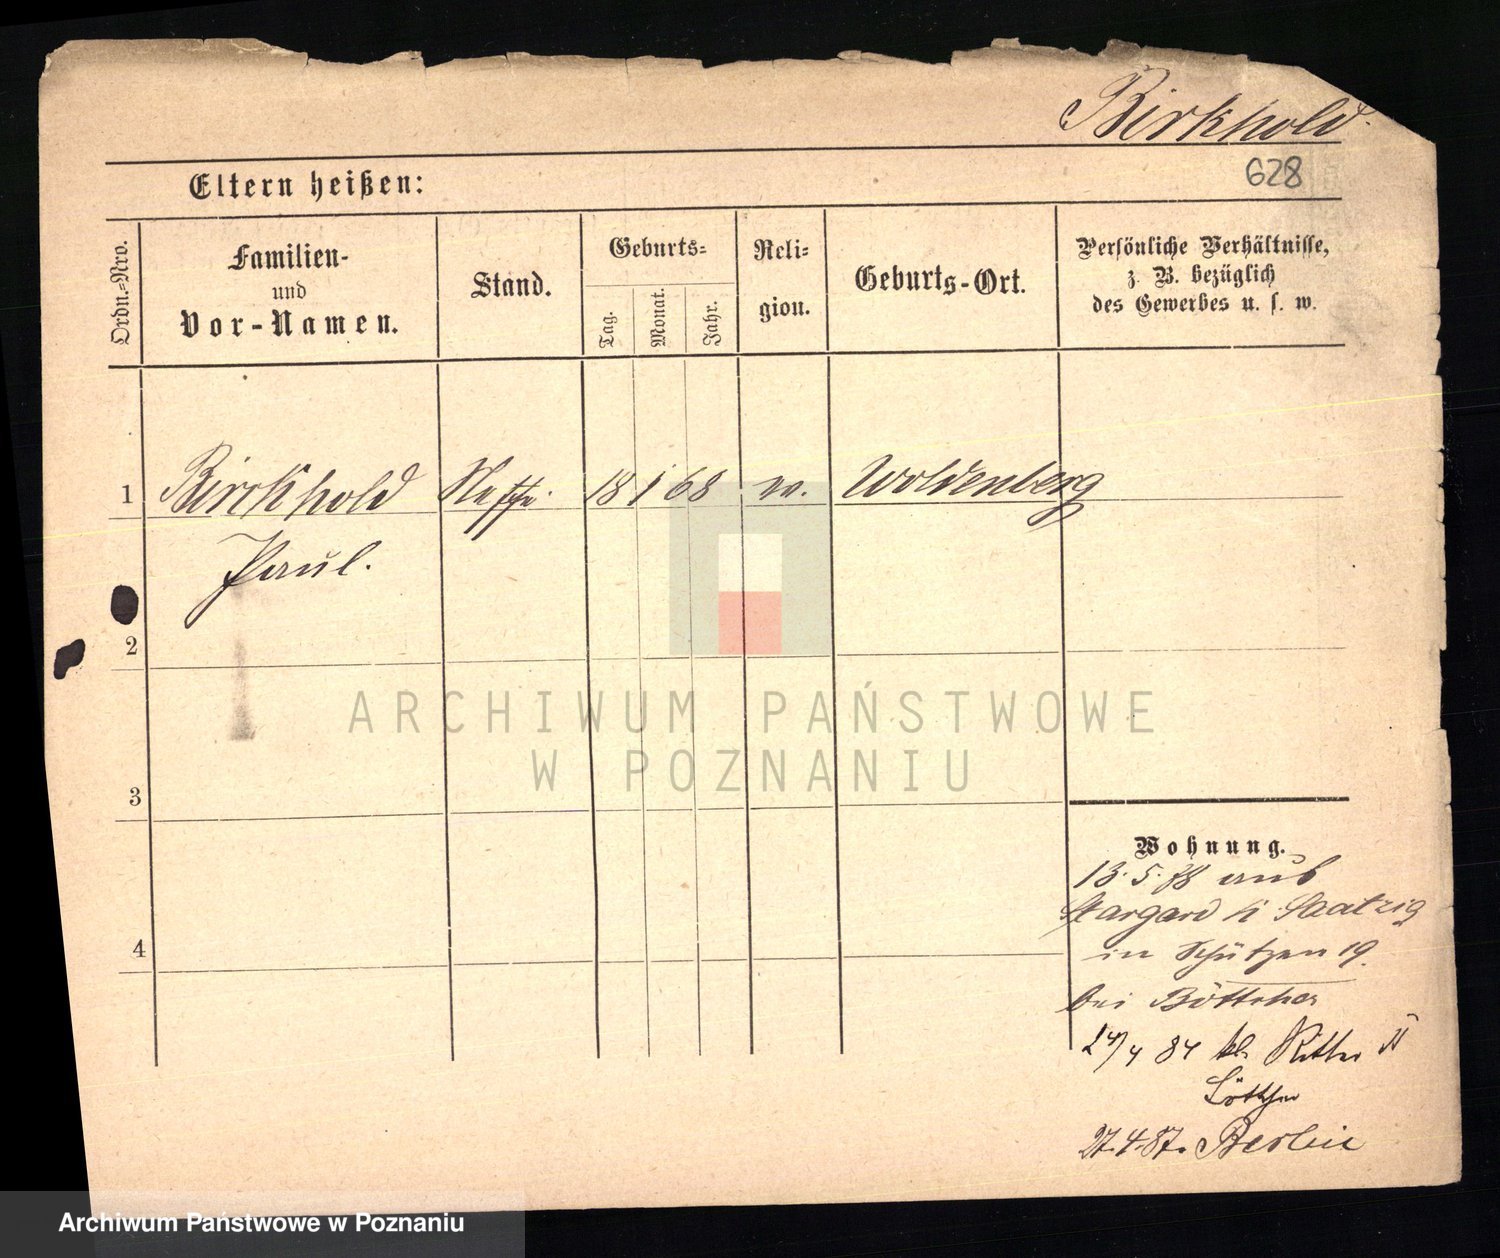 Birkhold.
628
Eltern heißen:
Ordn.-Nro.
Familien-
und
Vor-Namen.
Stand.
Geburts-
Tag.
Monat.
Jahr.
Reli-
gion.
Geburts-Ort.
Persönliche Verhältnisse,
z. B. bezüglich
des Gewerbes u. s. w.
1
Birckhold
Neffe.
18 1 68
ev.
Woldenberg
Paul.
2
3
4
Wohnung.
13.5.78 aus
Stargard
in Schützen 19.
bei Böttcher
24/4 84 kl. Ritter
27.4.87. Berlin
ARCHIWUM PAŃSTWOWE
W POZNANIU
Archiwum Państwowe w Poznaniu